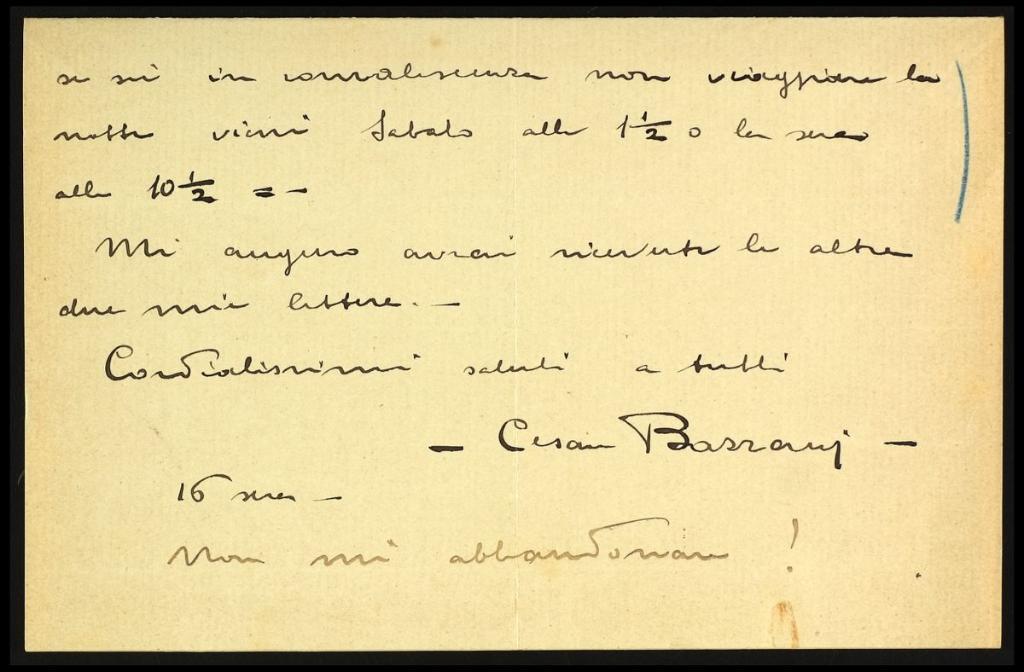 se sei in convalescenza non viaggiare la
notte vieni Sabato alle 1 1/2 o la sera
alle 10 1/2 = -
Mi auguro avrai ricevute le altre
due mie lettere. -
Cordialissimi saluti a tutti
- Cesare Bazzani -
16 sera -
Non mi abbandonare !